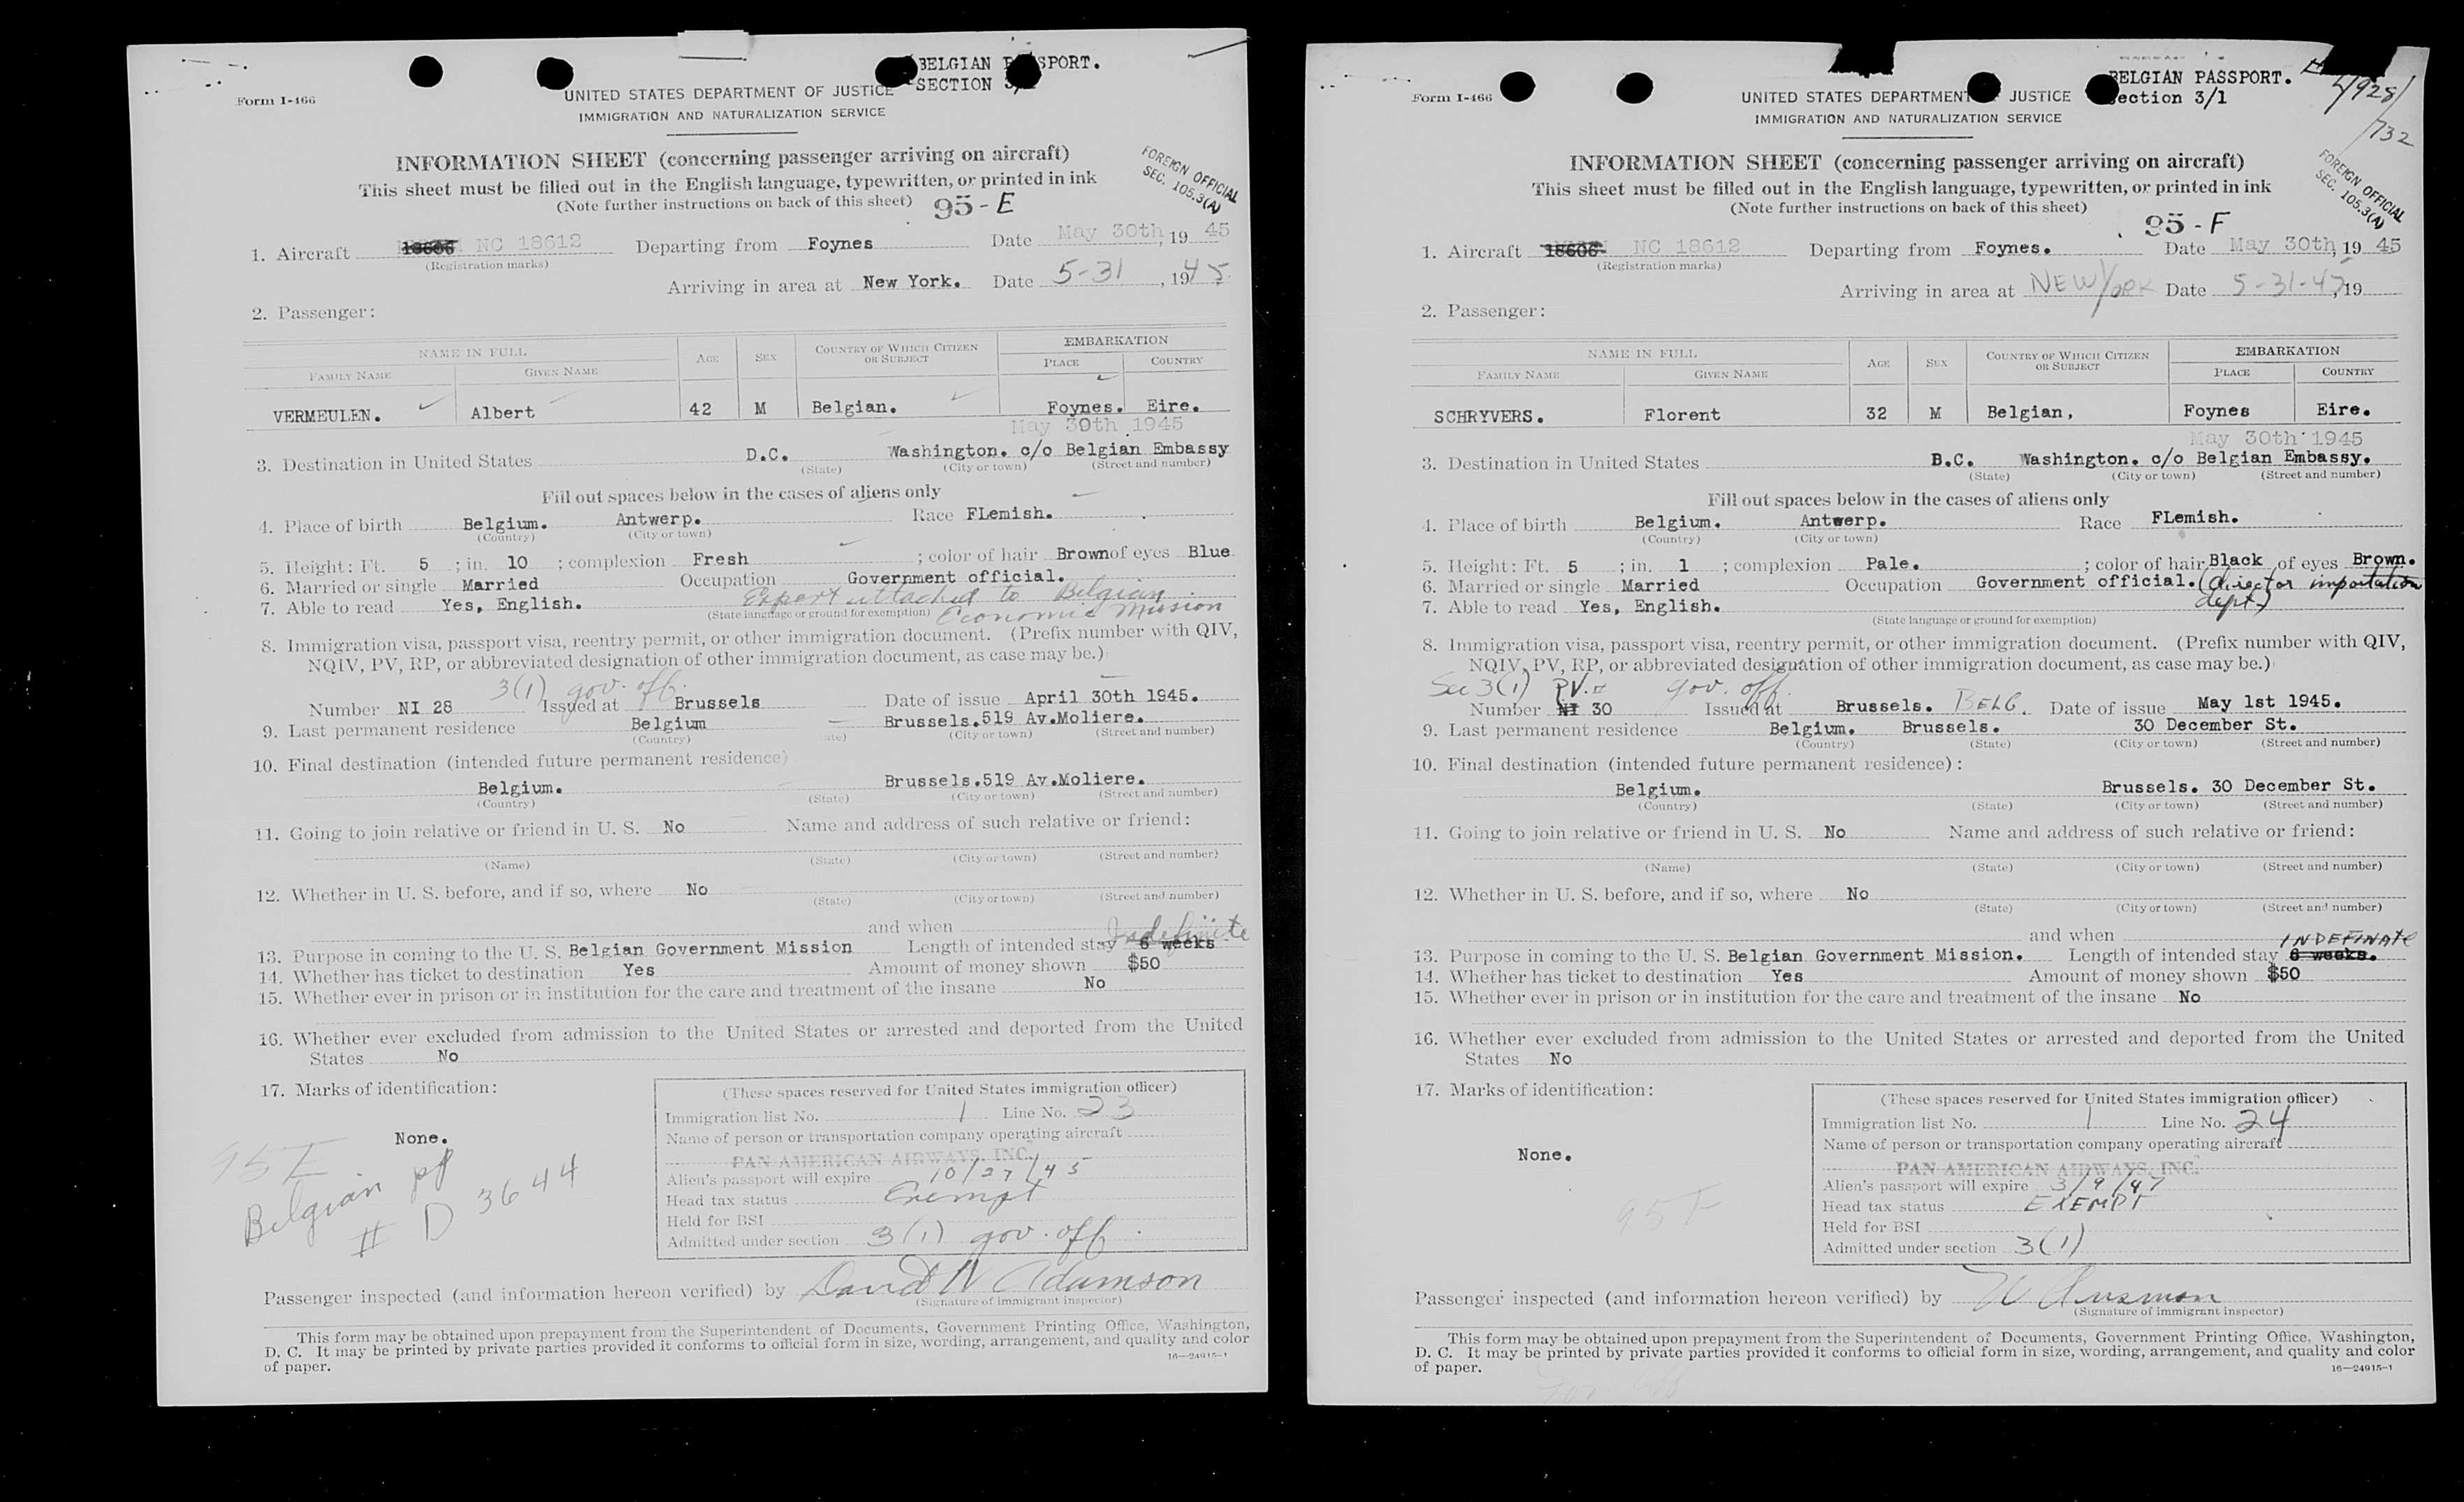 BELGIAN PASSPORT.
SECTION 3/
Form I-466
UNITED STATES DEPARTMENT OF JUSTICE
IMMIGRATION AND NATURALIZATION SERVICE
INFORMATION SHEET (concerning passenger arriving on aircraft)
This sheet must be filled out in the English language, typewritten, or printed in ink
(Note further instructions on back of this sheet)
95-E
FOREIGN OFFICIAL
SEC. 105.3(A)
1. Aircraft 18606 NC 18612 Departing from Foynes Date May 30th, 19 45
(Registration marks)
Arriving in area at New York. Date 5-31, 1945
2. Passenger:
NAME IN FULL AGE SEX COUNTRY OF WHICH CITIZEN OR SUBJECT EMBARKATION
FAMILY NAME GIVEN NAME PLACE COUNTRY
VERMEULEN. Albert 42 M Belgian. Foynes. Eire.
May 30th 1945
3. Destination in United States D.C. Washington. c/o Belgian Embassy
(State) (City or town) (Street and number)
Fill out spaces below in the cases of aliens only
4. Place of birth Belgium. Antwerp. Race FLemish.
(Country) (City or town)
5. Height: Ft. 5 ; in. 10 ; complexion Fresh ; color of hair Brown of eyes Blue
6. Married or single Married Occupation Government official.
Expert attached to Belgian
7. Able to read Yes, English.
(State language or ground for exemption) Economic Mission
8. Immigration visa, passport visa, reentry permit, or other immigration document. (Prefix number with QIV,
NQIV, PV, RP, or abbreviated designation of other immigration document, as case may be.)
3(1) gov. off.
Number NI 28 Issued at Brussels Date of issue April 30th 1945.
9. Last permanent residence Belgium Brussels. 519 Av.Moliere.
(Country) (City or town) (Street and number)
10. Final destination (intended future permanent residence)
Belgium. Brussels. 519 Av.Moliere.
(Country) (State) (City or town) (Street and number)
11. Going to join relative or friend in U. S. No Name and address of such relative or friend:
(Name) (State) (City or town) (Street and number)
12. Whether in U. S. before, and if so, where No
(State) (City or town) (Street and number)
and when
Indefinite
13. Purpose in coming to the U. S. Belgian Government Mission Length of intended stay 6 weeks
14. Whether has ticket to destination Yes Amount of money shown $50
15. Whether ever in prison or in institution for the care and treatment of the insane No
16. Whether ever excluded from admission to the United States or arrested and deported from the United
States No
17. Marks of identification:
None.
95E
Belgian pp
# D 3644
(These spaces reserved for United States immigration officer)
Immigration list No. 1 Line No. 23
Name of person or transportation company operating aircraft
PAN AMERICAN AIRWAYS, INC.
Alien's passport will expire 10/27/45
Head tax status Exempt
Held for BSI
Admitted under section 3(1) gov. off.
Passenger inspected (and information hereon verified) by David W Adamson
(Signature of immigrant inspector)
This form may be obtained upon prepayment from the Superintendent of Documents, Government Printing Office, Washington,
D. C. It may be printed by private parties provided it conforms to official form in size, wording, arrangement, and quality and color
of paper.
16—24915-1
BELGIAN PASSPORT.
Section 3/1
4/928/
732
Form I-466
UNITED STATES DEPARTMENT OF JUSTICE
IMMIGRATION AND NATURALIZATION SERVICE
INFORMATION SHEET (concerning passenger arriving on aircraft)
This sheet must be filled out in the English language, typewritten, or printed in ink
(Note further instructions on back of this sheet)
95-F
FOREIGN OFFICIAL
SEC. 105.3(A)
1. Aircraft 18606 NC 18612 Departing from Foynes. Date May 30th, 19 45
(Registration marks)
Arriving in area at NEW YORK Date 5-31-45, 19
2. Passenger:
NAME IN FULL AGE SEX COUNTRY OF WHICH CITIZEN OR SUBJECT EMBARKATION
FAMILY NAME GIVEN NAME PLACE COUNTRY
SCHRYVERS. Florent 32 M Belgian, Foynes Eire.
May 30th 1945
3. Destination in United States B.C. Washington. c/o Belgian Embassy.
(State) (City or town) (Street and number)
Fill out spaces below in the cases of aliens only
4. Place of birth Belgium. Antwerp. Race FLemish.
(Country) (City or town)
5. Height: Ft. 5 ; in. 1 ; complexion Pale. ; color of hair Black of eyes Brown.
6. Married or single Married Occupation Government official. (director importation
dept.)
7. Able to read Yes, English.
(State language or ground for exemption)
8. Immigration visa, passport visa, reentry permit, or other immigration document. (Prefix number with QIV,
NQIV, PV, RP, or abbreviated designation of other immigration document, as case may be.)
Sec 3(1) PV. gov. off.
Number NI 30 Issued at Brussels. BELG. Date of issue May 1st 1945.
9. Last permanent residence Belgium. Brussels. 30 December St.
(Country) (State) (City or town) (Street and number)
10. Final destination (intended future permanent residence):
Belgium. Brussels. 30 December St.
(Country) (State) (City or town) (Street and number)
11. Going to join relative or friend in U. S. No Name and address of such relative or friend:
(Name) (State) (City or town) (Street and number)
12. Whether in U. S. before, and if so, where No
(State) (City or town) (Street and number)
and when
INDEFINATE
13. Purpose in coming to the U. S. Belgian Government Mission. Length of intended stay 6 weeks.
14. Whether has ticket to destination Yes Amount of money shown $50
15. Whether ever in prison or in institution for the care and treatment of the insane No
16. Whether ever excluded from admission to the United States or arrested and deported from the United
States No
17. Marks of identification:
None.
95F
(These spaces reserved for United States immigration officer)
Immigration list No. 1 Line No. 24
Name of person or transportation company operating aircraft
PAN AMERICAN AIRWAYS, INC.
Alien's passport will expire 3/9/47
Head tax status EXEMPT
Held for BSI
Admitted under section 3(1)
Passenger inspected (and information hereon verified) by
(Signature of immigrant inspector)
This form may be obtained upon prepayment from the Superintendent of Documents, Government Printing Office, Washington,
D. C. It may be printed by private parties provided it conforms to official form in size, wording, arrangement, and quality and color
of paper.
16—24915-1